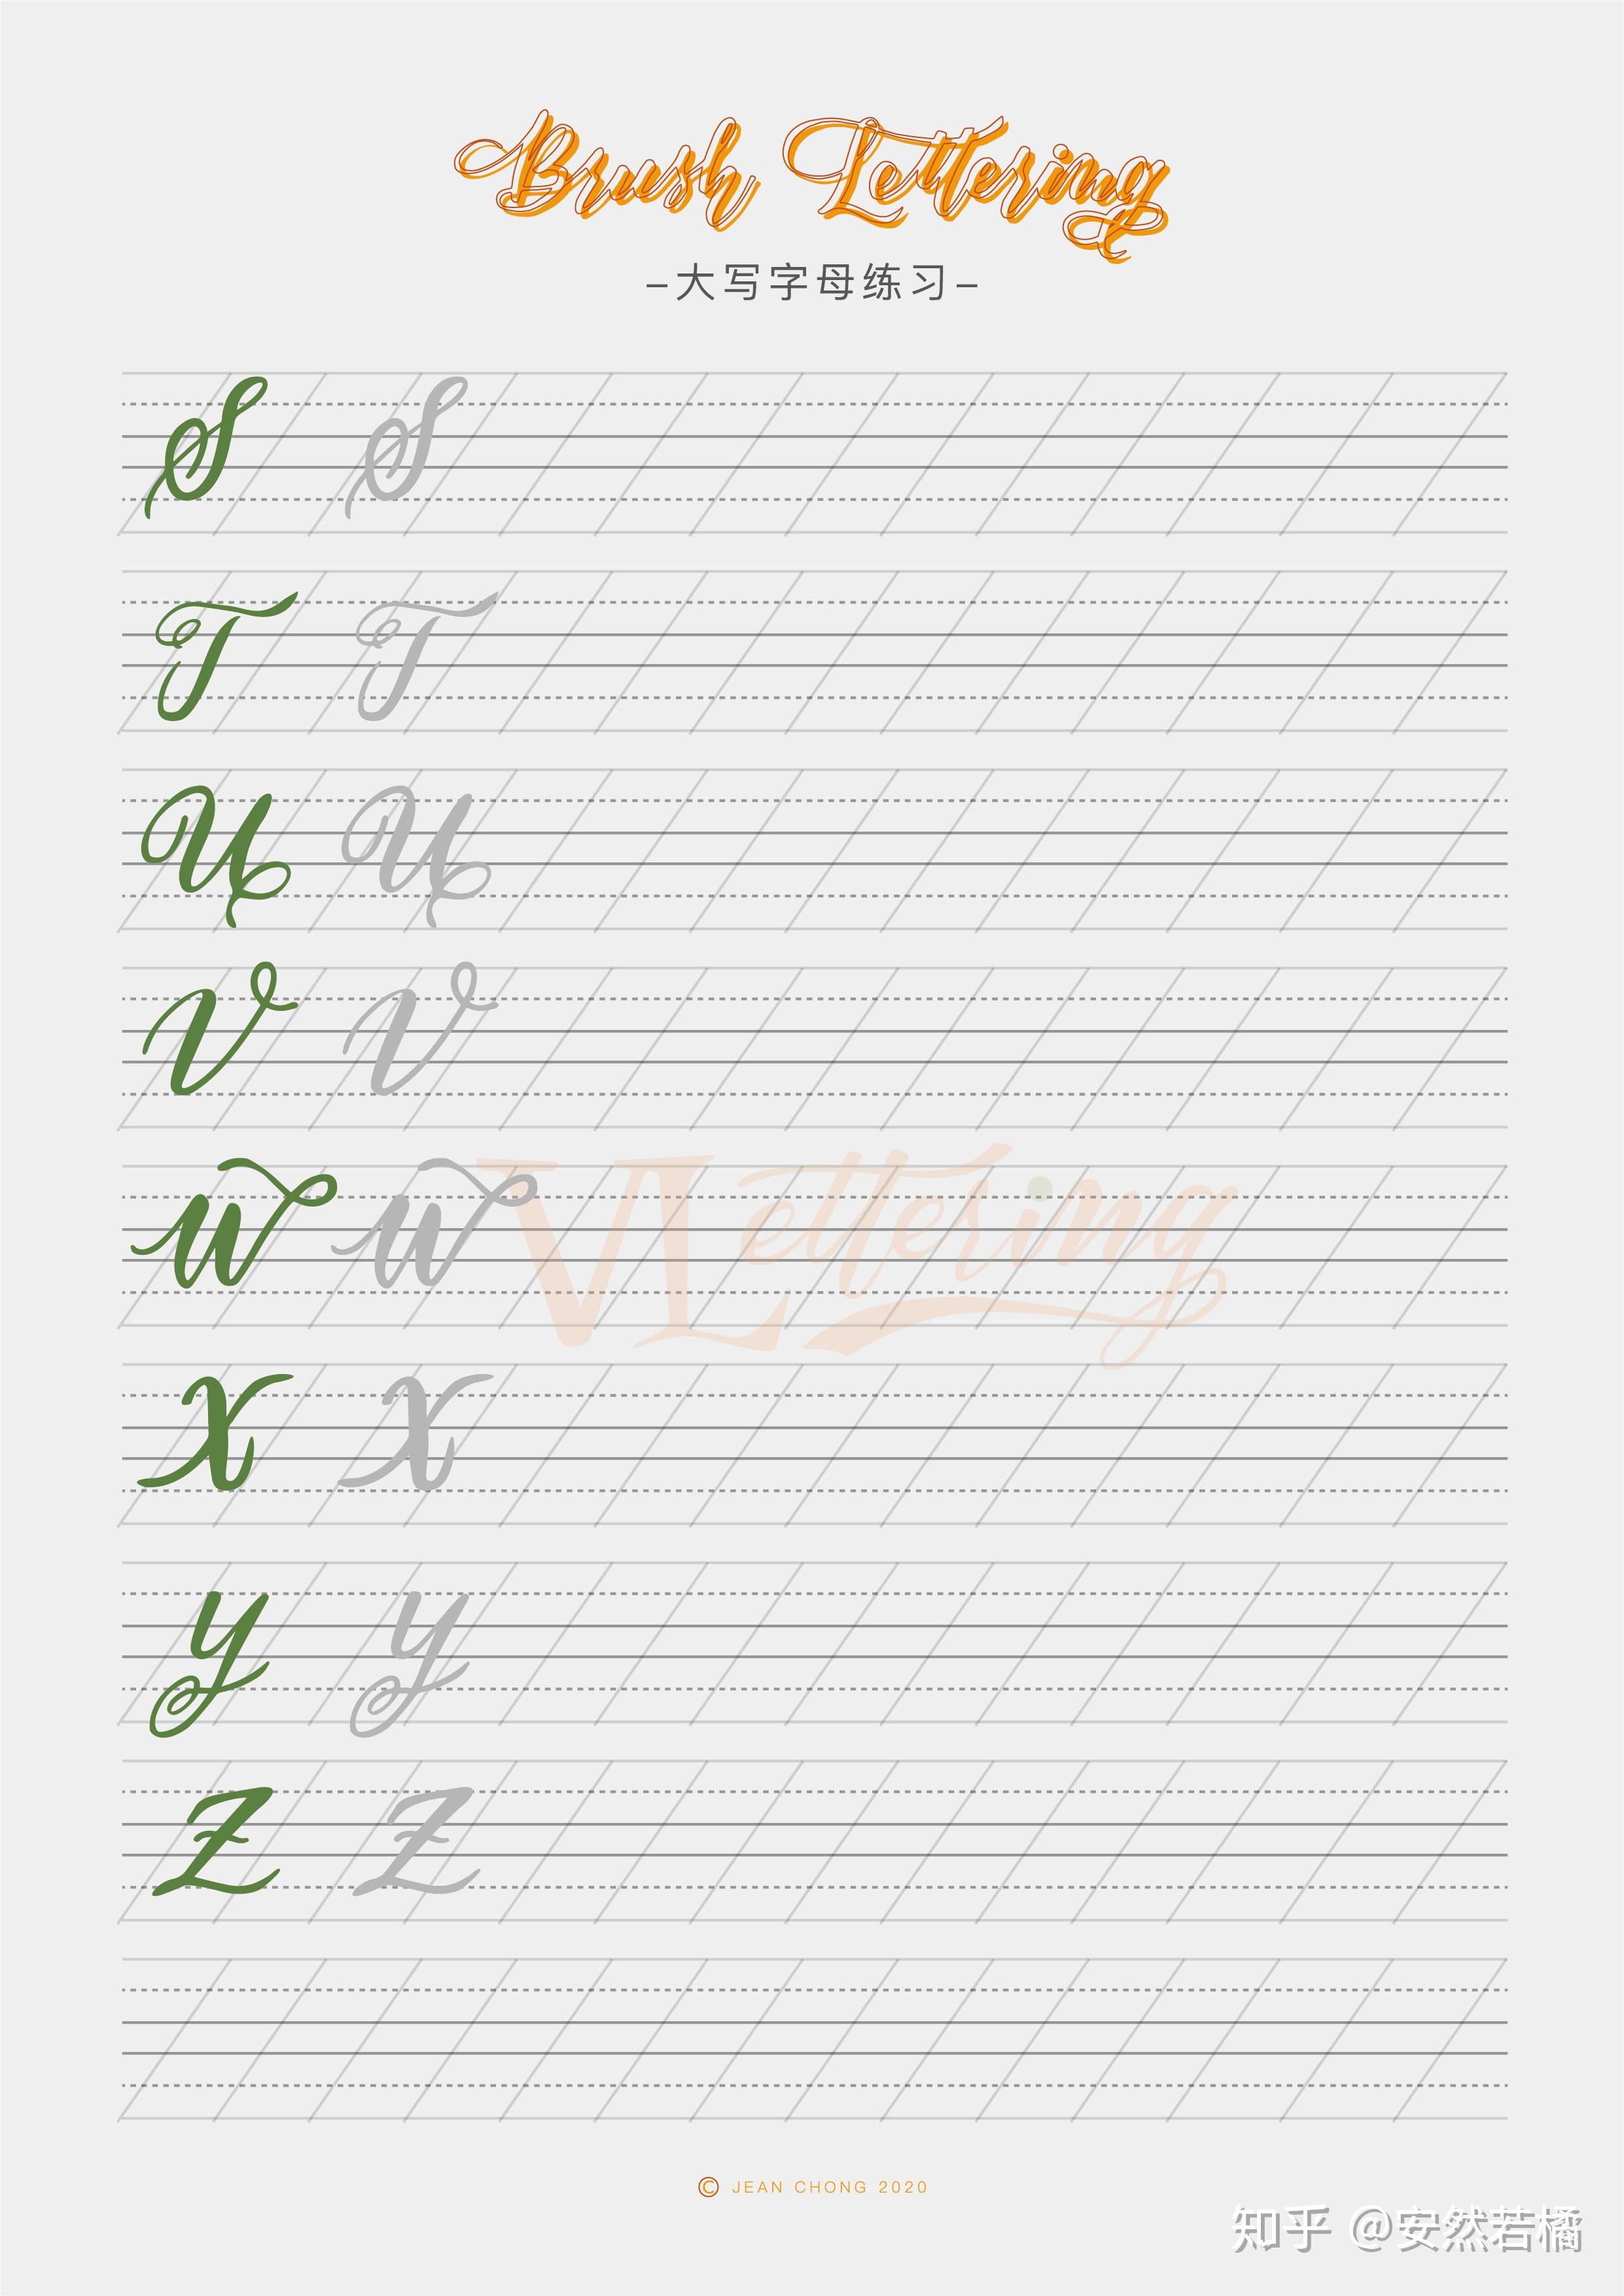 Brush Lettering
–大写字母练习–
S S
T T
U U
V V
W W
VLettering
X X
Y Y
Z Z
© JEAN CHONG 2020
知乎 @安然若橘